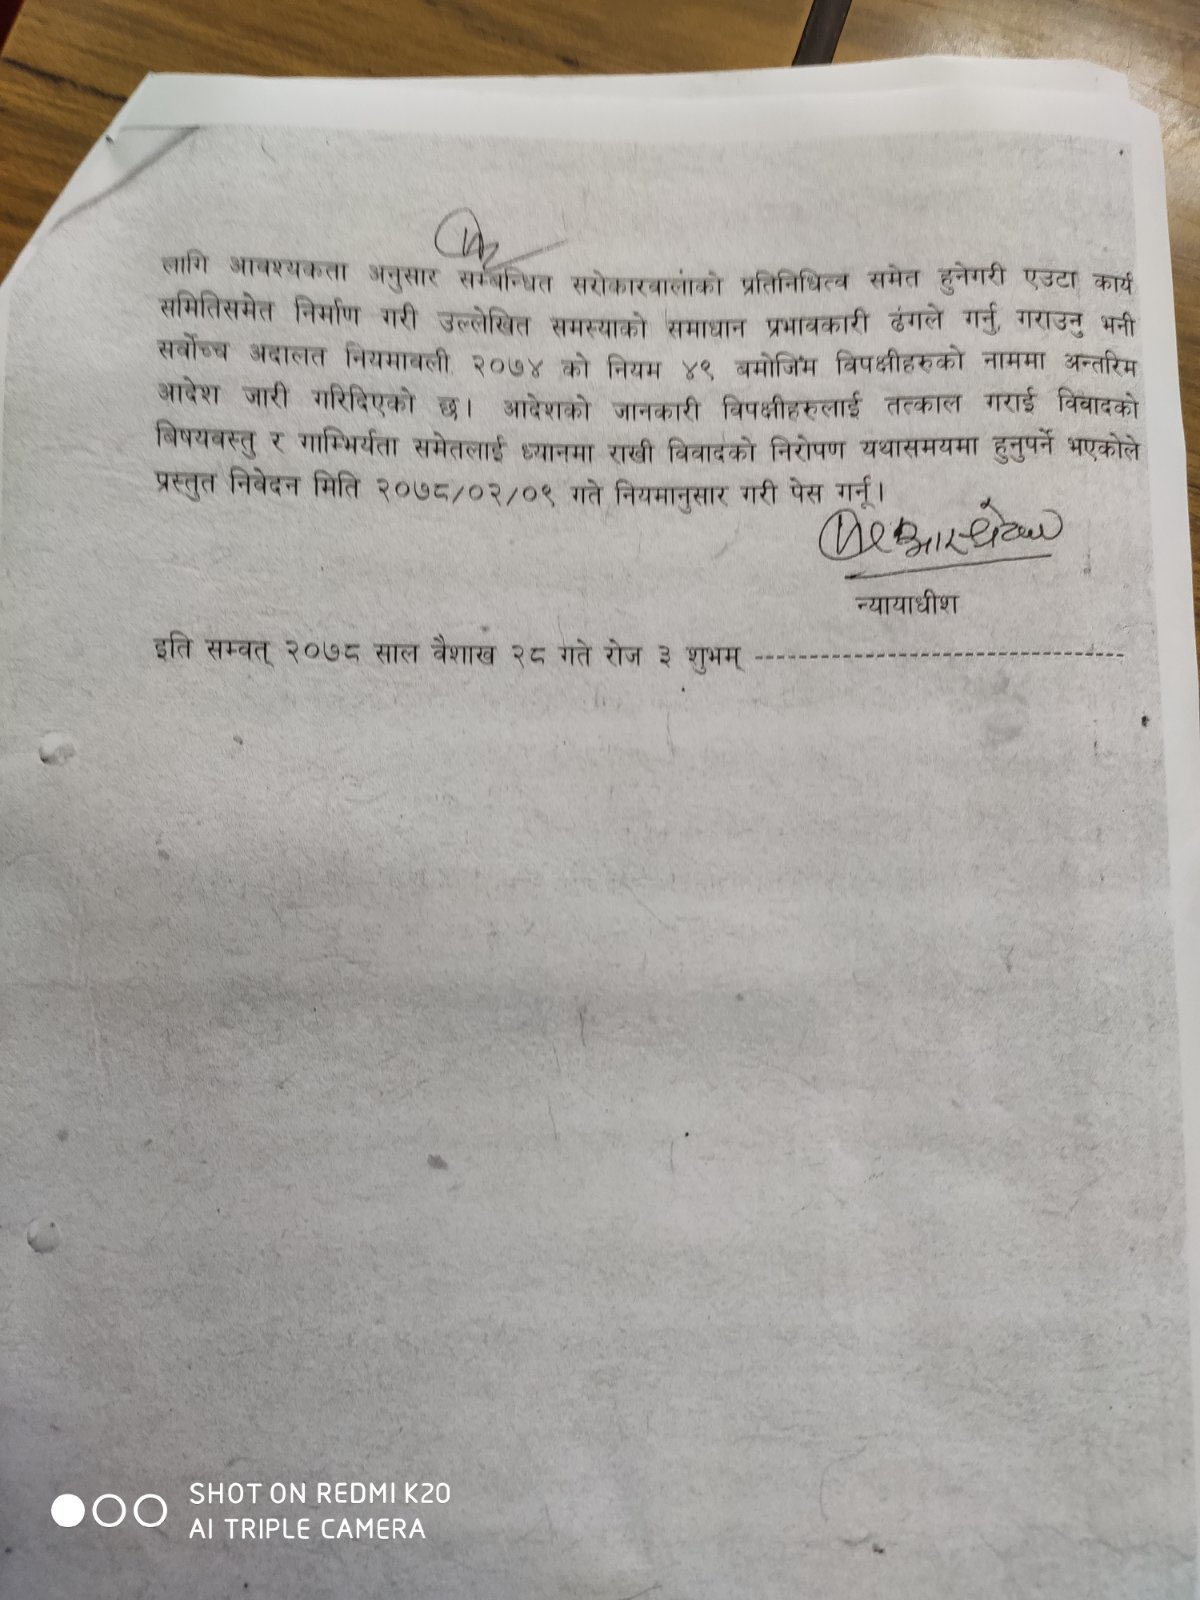 लागि आवश्यकता अनुसार सम्बन्धित सरोकारवालाको प्रतिनिधित्व समेत हुनेगरी एउटा कार्य
समितिसमेत निर्माण गरी उल्लेखित समस्याको समाधान प्रभावकारी ढंगले गर्नु, गराउनु भनी
सर्वोच्च अदालत नियमावली २०७४ को नियम ४९ बमोजिम विपक्षीहरुको नाममा अन्तरिम
आदेश जारी गरिदिएको छ। आदेशको जानकारी विपक्षीहरुलाई तत्काल गराई विवादको
बिषयबस्तु र गाम्भिर्यता समेतलाई ध्यानमा राखी विवादको निरोपण यथासमयमा हुनुपर्ने भएकोले
प्रस्तुत निवेदन मिति २०७८/०२/०९ गते नियमानुसार गरी पेस गर्नू।
न्यायाधीश
इति सम्वत् २०७८ साल वैशाख २८ गते रोज ३ शुभम् ----------------------------------
SHOT ON REDMI K20
AI TRIPLE CAMERA